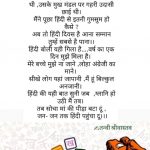 थी ,उसके मुख मंडल पर गहरी उदासी
छाई थी।
मैंने पूछा हिंदी से इतनी गुमसुम हो
कैसे ?
अब तो हिंदी दिवस है आना सम्मान
तुम्हें सबसे है पाना।।
हिंदी बोली यही मिला है....वर्ष का एक
दिन मुझे मिला है।
मेरे बच्चे मुझे ना जाने ,लोहा अंग्रेजी का
माने।
सीखे लोग यहां जापानी ,मैं हूं बिल्कुल
अनजानी।
हिंदी की यही बात सुनी जब ,ग्लानि हो
उठी मैं तब।
तब सोचा मां की पीड़ा बटा दूं ,
जन- जन तक हिंदी पहुंचा दूं।।।
श्रीवास्तव